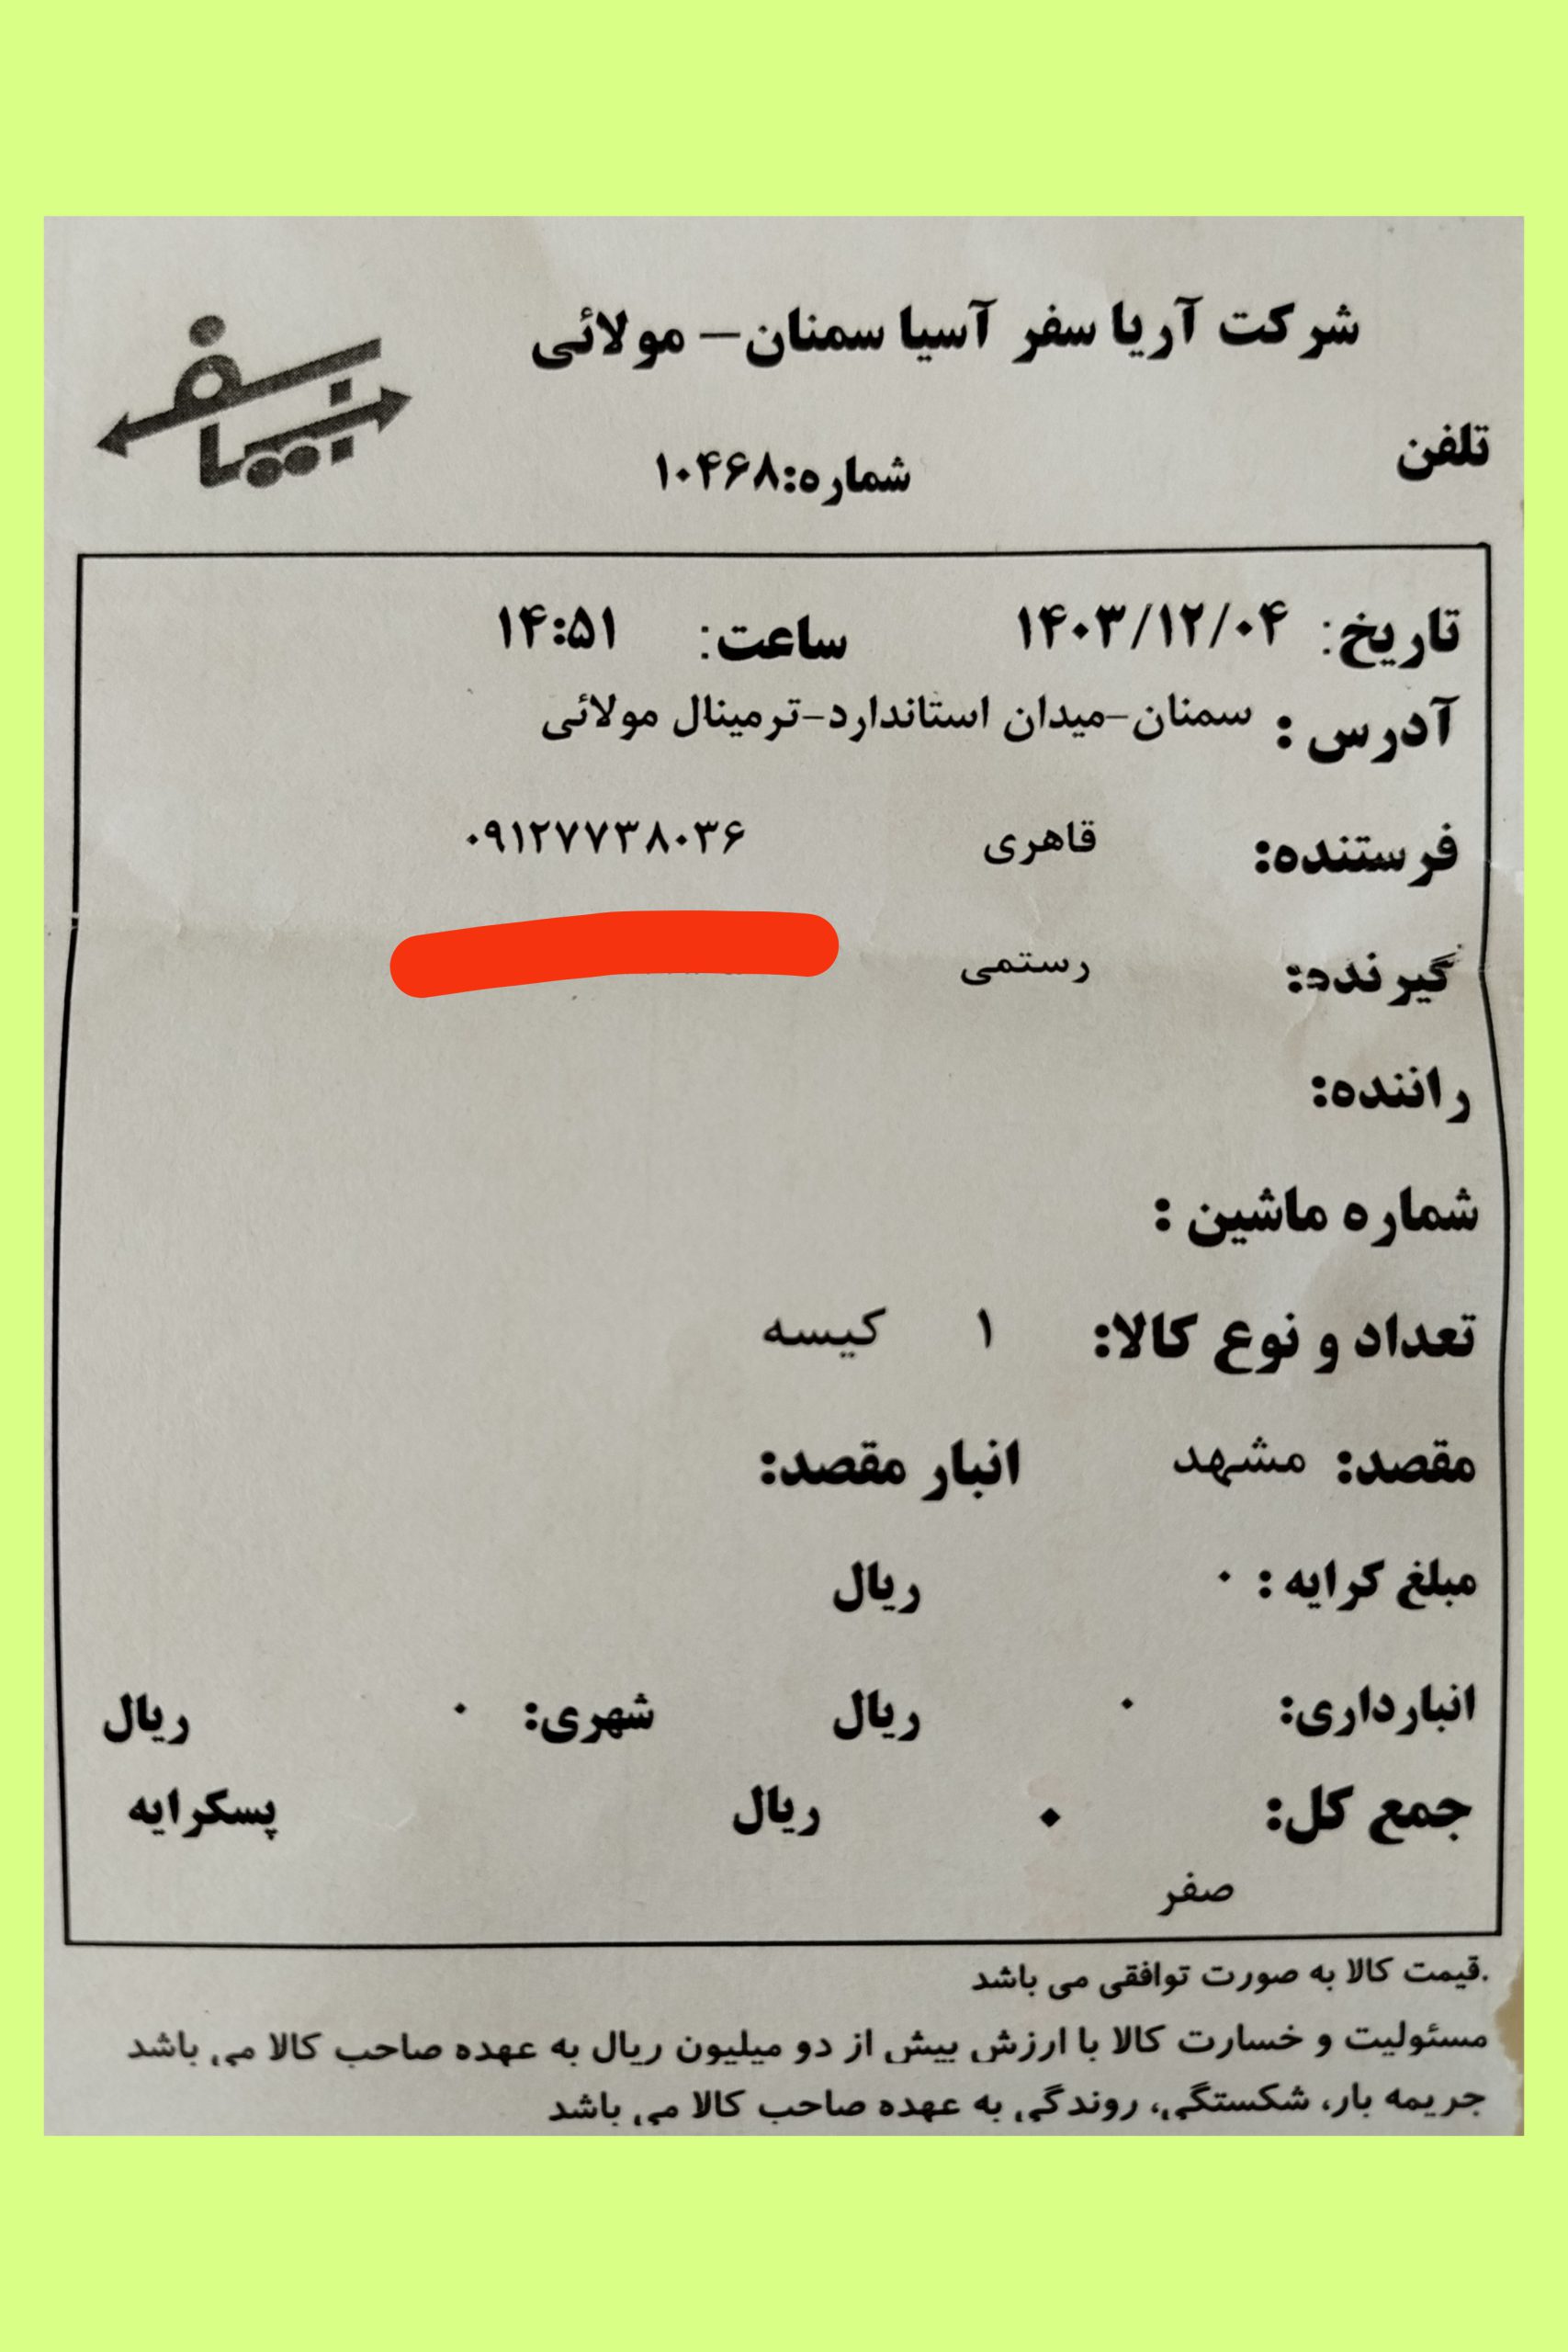 شرکت آریا سفر آسیا سمنان- مولائی
سیر سفر
تلفن
شماره:۱۰۴۶۸
تاریخ: ۱۴۰۳/۱۲/۰۴ ساعت: ۱۴:۵۱
آدرس : سمنان-میدان استاندارد-ترمینال مولائی
فرستنده: قاهری ۰۹۱۲۷۷۳۸۰۳۶
گیرنده: رستمی
راننده:
شماره ماشین :
تعداد و نوع کالا: ۱ کیسه
مقصد: مشهد انبار مقصد:
مبلغ کرایه : ۰ ریال
انبارداری: ۰ ریال شهری: ۰ ریال
جمع کل: ۰ ریال پسکرایه
صفر
.قیمت کالا به صورت توافقی می باشد
مسئولیت و خسارت کالا با ارزش بیش از دو میلیون ریال به عهده صاحب کالا می باشد
جریمه بار، شکستگی، روندگی به عهده صاحب کالا می باشد